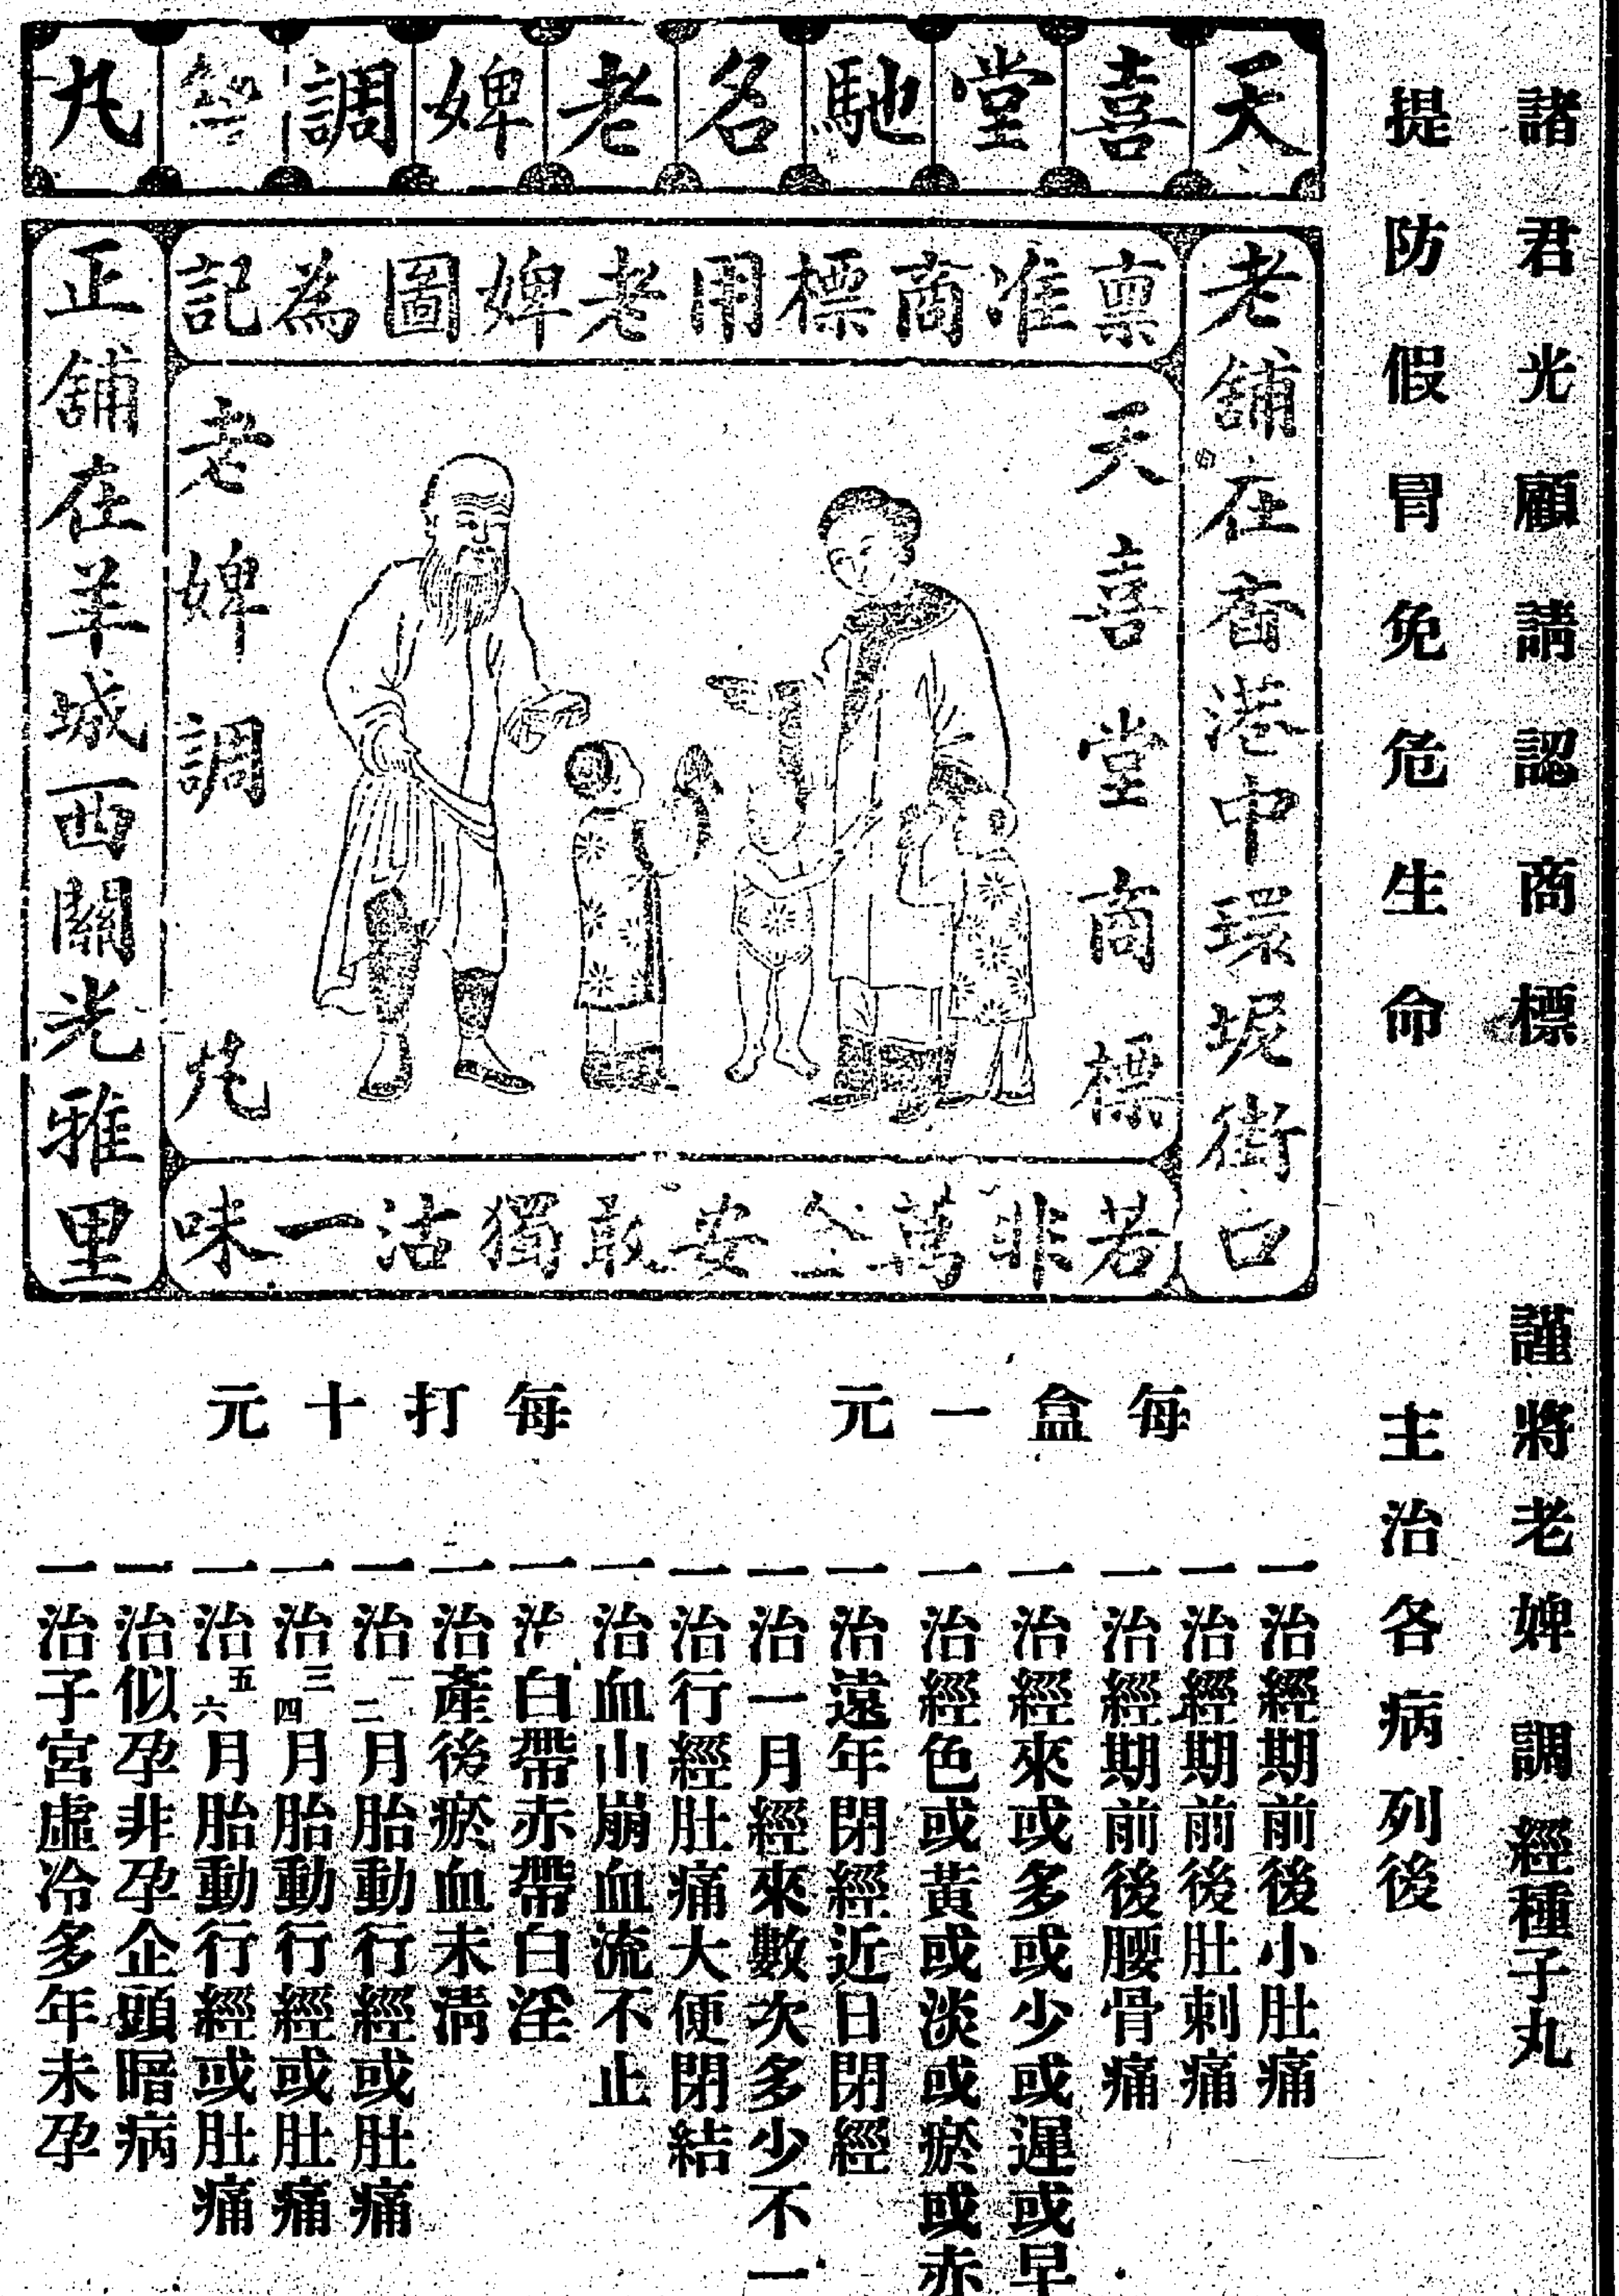 諸君光顧請認商標
提防假冒免危生命
天喜堂馳名老婢調經丸
老舖在香港中環坭街口
稟准商標用老婢圖為記
天喜堂商標
老婢調 丸
若非萬全安敢獨沽一味
正舖在羊城西關光雅里
每盒一元
每打十元
謹將老婢調經種子丸
主治各病列後
一治經期前後小肚痛
一治經期前後肚刺痛
一治經期前後腰骨痛
一治經來或多或少或遲或早
一治經色或黃或淡或瘀或赤
一治遠年閉經近日閉經
一治一月經來數次多少不一
一治行經肚痛大便閉結
一治血山崩血流不止
一治白帶赤帶白淫
一治產後瘀血未清
一治一二月胎動行經或肚痛
一治三四月胎動行經或肚痛
一治五六月胎動行經或肚痛
一治似孕非孕企頭暗病
一治子宮虛冷多年未孕